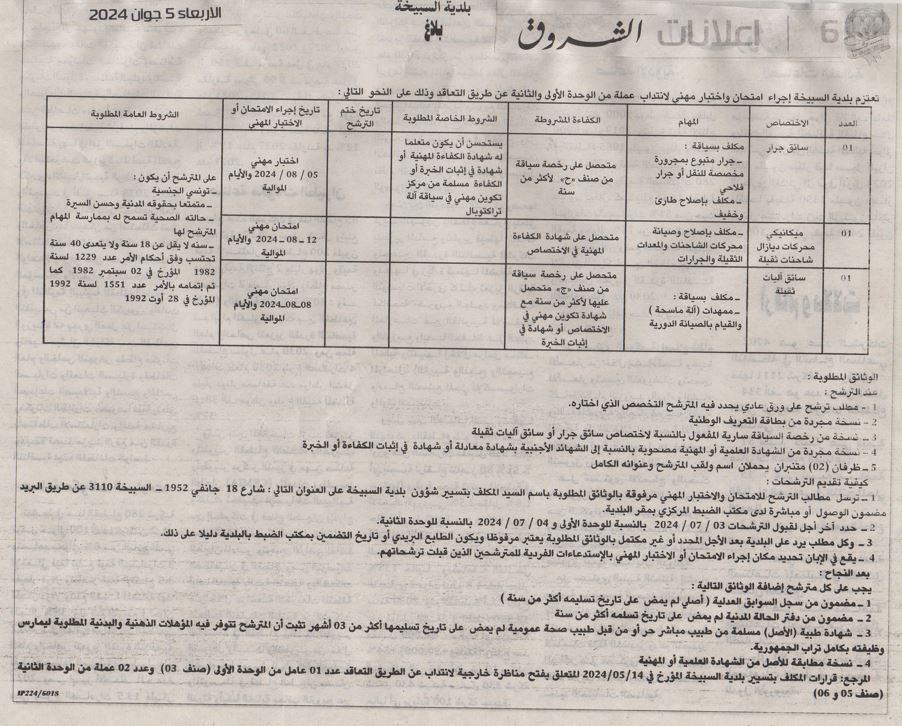 إعلانات
الشروق
بلدية السبيخة
بلاغ
الاربعاء 5 جوان 2024
تعتزم بلدية السبيخة إجراء امتحان واختبار مهني لانتداب عملة من الوحدة الأولى والثانية عن طريق التعاقد وذلك على النحو التالي :
العدد
الاختصاص
المهام
الكفاءة المشروطة
الشروط الخاصة المطلوبة
تاريخ ختم
الترشح
تاريخ إجراء الامتحان أو
الاختبار المهني
الشروط العامة المطلوبة
01
سائق جرار
مكلف بسياقة :
ـ جرار متبوع بمجرورة
مخصصة للنقل أو جرار
فلاحي
ـ مكلف بإصلاح طارئ
وخفيف
متحصل على رخصة سياقة
من صنف «ح» لأكثر من
سنة
يستحسن أن يكون متعلما
له شهادة الكفاءة المهنية أو
شهادة في إثبات الخبرة أو
الكفاءة مسلمة من مركز
تكوين مهني في سياقة آلة
تراكتوبال
اختبار مهني
05 / 08 / 2024 والأيام
الموالية
على المترشح أن يكون :
ـ تونسي الجنسية
ـ متمتعا بحقوقه المدنية وحسن السيرة
ـ حالته الصحية تسمح له بممارسة المهام
المترشح لها
ـ سنه لا يقل عن 18 سنة ولا يتعدى 40 سنة
تحتسب وفق أحكام الأمر عدد 1229 لسنة
1982 المؤرخ في 02 سبتمبر 1982 كما
تم إتمامه بالأمر عدد 1551 لسنة 1992
المؤرخ في 28 أوت 1992
01
ميكانيكي
محركات ديازال
شاحنات ثقيلة
ـ مكلف بإصلاح وصيانة
محركات الشاحنات والمعدات
الثقيلة والجرارات
متحصل على شهادة الكفاءة
المهنية في الاختصاص
امتحان مهني
12 ــ 08 ــ 2024 والأيام
الموالية
01
سائق آليات
ثقيلة
ـ مكلف بسياقة :
ـ ممهدات (آلة ماسحة )
والقيام بالصيانة الدورية
متحصل على رخصة سياقة
من صنف «ج» متحصل
عليها لأكثر من سنة مع
شهادة تكوين مهني في
الاختصاص أو شهادة في
إثبات الخبرة
امتحان مهني
08ــ08ــ2024 والأيام
الموالية
الوثائق المطلوبة :
عند الترشح :
1 - مطلب ترشح على ورق عادي يحدد فيه المترشح التخصص الذي اختاره.
2 - نسخة مجردة من بطاقة التعريف الوطنية
3 ـ نسخة من رخصة السياقة سارية المفعول بالنسبة لاختصاص سائق جرار أو سائق آليات ثقيلة
4 - نسخة مجردة من الشهادة العلمية أو المهنية مصحوبة بالنسبة إلى الشهائد الأجنبية بشهادة معادلة أو شهادة في إثبات الكفاءة أو الخبرة
5 ـ ظرفان (02) متنبران يحملان اسم ولقب المترشح وعنوانه الكامل
كيفية تقديم الترشحات :
1 ـ ترسل مطالب الترشح للامتحان والاختبار المهني مرفوقة بالوثائق المطلوبة باسم السيد المكلف بتسيير شؤون بلدية السبيخة على العنوان التالي : شارع 18 جانفي 1952 ـ السبيخة 3110 عن طريق البريد
مضمون الوصول أو مباشرة لدى مكتب الضبط المركزي بمقر البلدية.
2 ـ حدد آخر أجل لقبول الترشحات 03 / 07 / 2024 بالنسبة للوحدة الأولى و 04 / 07 / 2024 بالنسبة للوحدة الثانية.
3 ـ وكل مطلب يرد على البلدية بعد الأجل المحدد أو غير مكتمل بالوثائق المطلوبة يعتبر مرفوضا ويكون الطابع البريدي أو تاريخ التضمين بمكتب الضبط بالبلدية دليلا على ذلك.
4 ـ يقع في الإبان تحديد مكان إجراء الامتحان أو الاختبار المهني بالإستدعاءات الفردية للمترشحين الذين قبلت ترشحاتهم.
بعد النجاح :
يجب على كل مترشح إضافة الوثائق التالية :
1 ـ مضمون من سجل السوابق العدلية ( أصلي لم يمض على تاريخ تسليمه أكثر من سنة )
2 ـ مضمون من دفتر الحالة المدنية لم يمض على تاريخ تسلمه أكثر من سنة
3 ـ شهادة طبية (الأصل) مسلمة من طبيب مباشر حر أو من قبل طبيب صحة عمومية لم يمض على تاريخ تسليمها أكثر من 03 أشهر تثبت أن المترشح تتوفر فيه المؤهلات الذهنية والبدنية المطلوبة ليمارس
وظيفته بكامل تراب الجمهورية.
4 ـ نسخة مطابقة للأصل من الشهادة العلمية أو المهنية
المرجع: قرارات المكلف بتسيير بلدية السبيخة المؤرخ في 2024/05/14 المتعلق بفتح مناظرة خارجية لانتداب عن الطريق التعاقد عدد 01 عامل من الوحدة الأولى (صنف 03) وعدد 02 عملة من الوحدة الثانية
(صنف 05 و 06)
IP224/6018